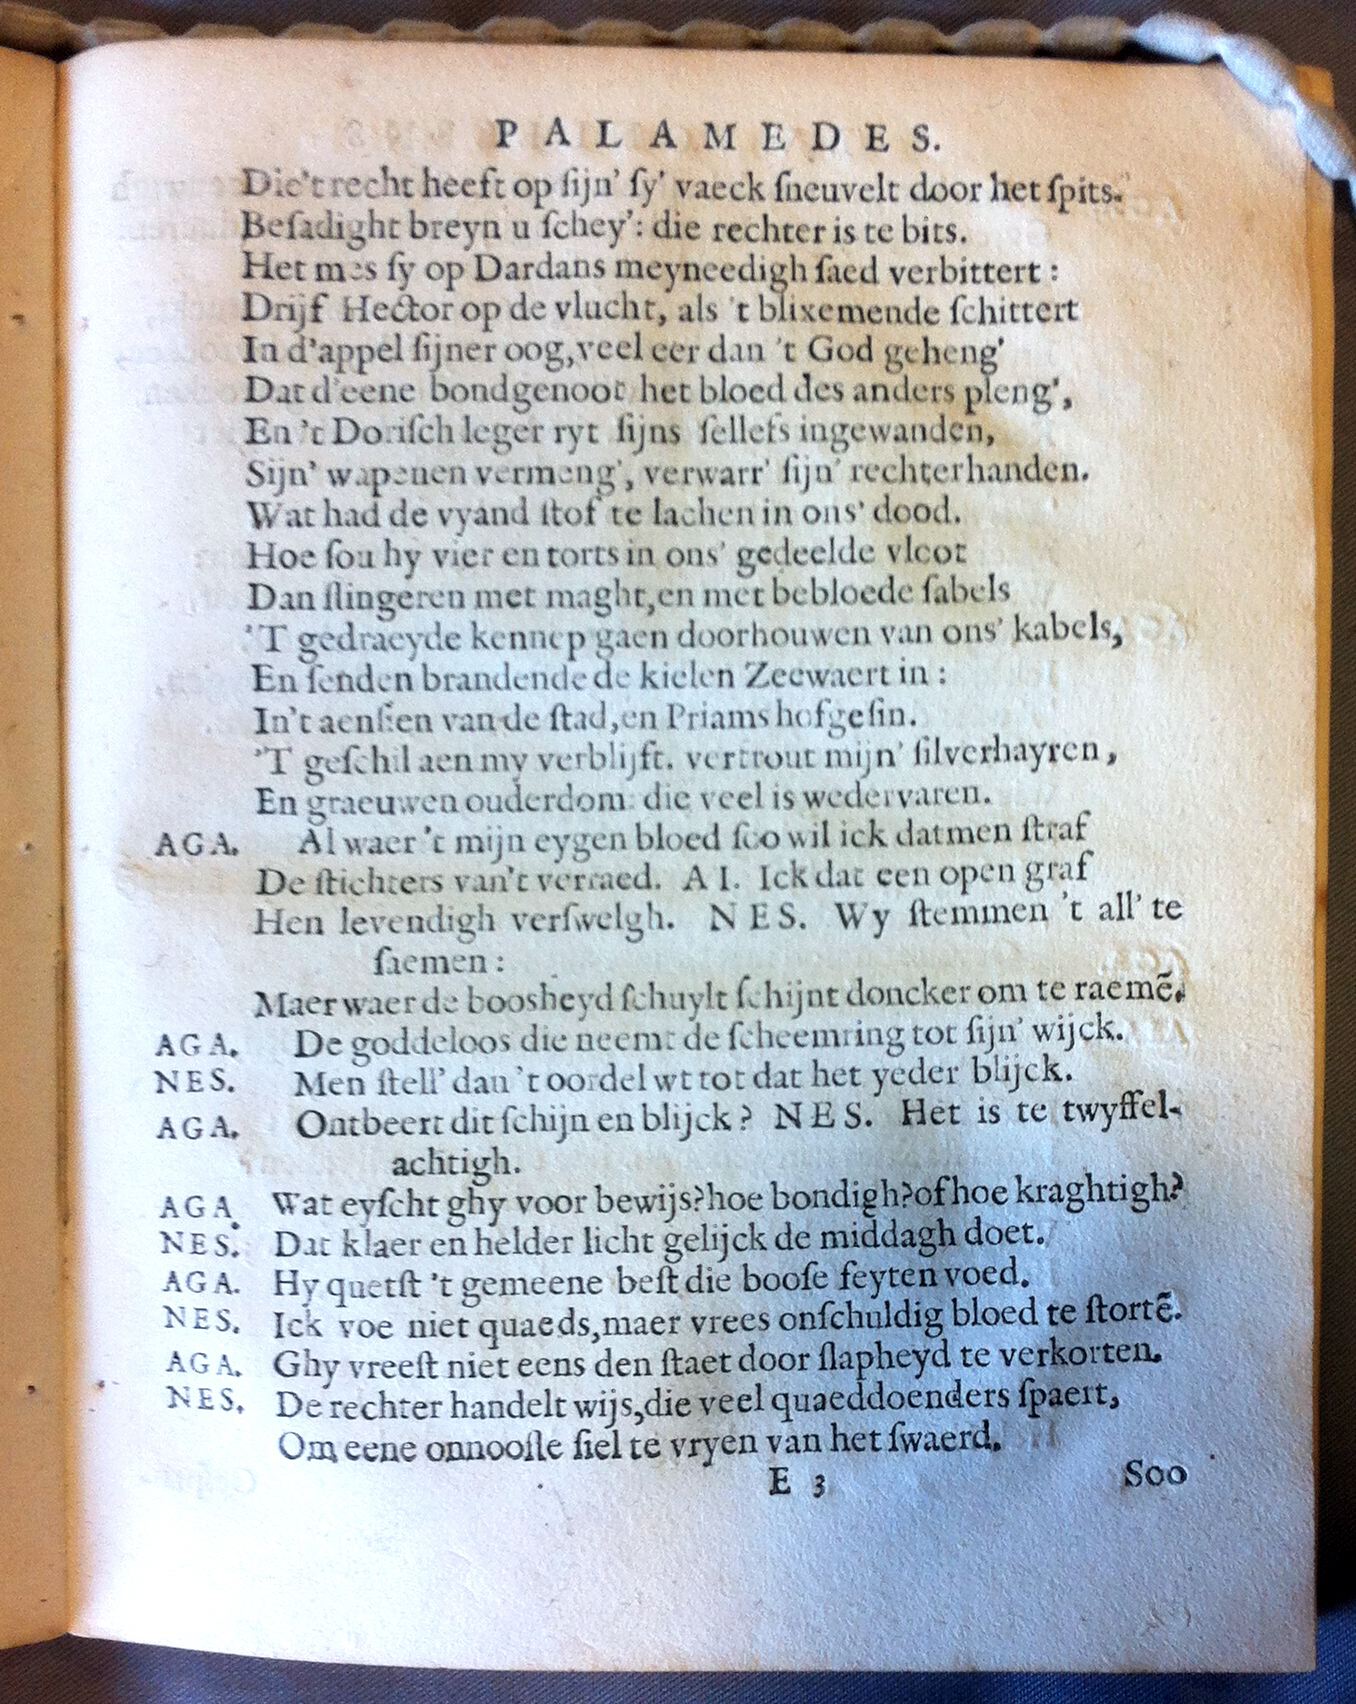 PALAMEDES.
Die't recht heeft op ſijn' ſy' vaeck ſneuvelt door het ſpits.
Beſadight breyn u ſchey': die rechter is te bits.
Het mes ſy op Dardans meyneedigh ſaed verbittert:
Drijf Hector op de vlucht, als 't blixemende ſchittert
In d'appel ſijner oog, veel eer dan 't God geheng'
Dat d'eene bondgenoot het bloed des anders pleng',
En 't Doriſch leger ryt ſijns ſelleſs ingewanden,
Sijn' wapenen vermeng', verwarr' ſijn' rechterhanden.
Wat had de vyand ſtof te lachen in ons' dood.
Hoe ſou hy vier en torts in ons' gedeelde vloot
Dan ſlingeren met maght, en met bebloede ſabels
'T gedraeyde kennep gaen doorhouwen van ons' kabels,
En ſenden brandende de kielen Zeewaert in:
In't aenſien van de ſtad, en Priams hofgeſin.
'T geſchil aen my verblijft. vertrout mijn' ſilverhayren,
En graeuwen ouderdom: die veel is wedervaren.
AGA. Al waer 't mijn eygen bloed ſoo wil ick datmen ſtraf
De ſtichters van't verraed. AI. Ick dat een open graf
Hen levendigh verſwelgh. NES. Wy ſtemmen 't all' te
ſaemen:
Maer waer de boosheyd ſchuylt ſchijnt doncker om te raemē.
AGA. De goddeloos die neemt de ſcheemring tot ſijn' wijck.
NES. Men ſtell' dan 't oordel wt tot dat het yeder blijck.
AGA. Ontbeert dit ſchijn en blijck? NES. Het is te twyffel-
achtigh.
AGA. Wat eyſcht ghy voor bewijs? hoe bondigh? of hoe kraghtigh?
NES. Dat klaer en helder licht gelijck de middagh doet.
AGA. Hy quetſt 't gemeene beſt die booſe feyten voed.
NES. Ick voe niet quaeds, maer vrees onſchuldig bloed te ſtortē.
AGA. Ghy vreeſt niet eens den ſtaet door ſlapheyd te verkorten.
NES. De rechter handelt wijs, die veel quaeddoenders ſpaert,
Om eene onnooſle ſiel te vryen van het ſwaerd.
E 3 Soo